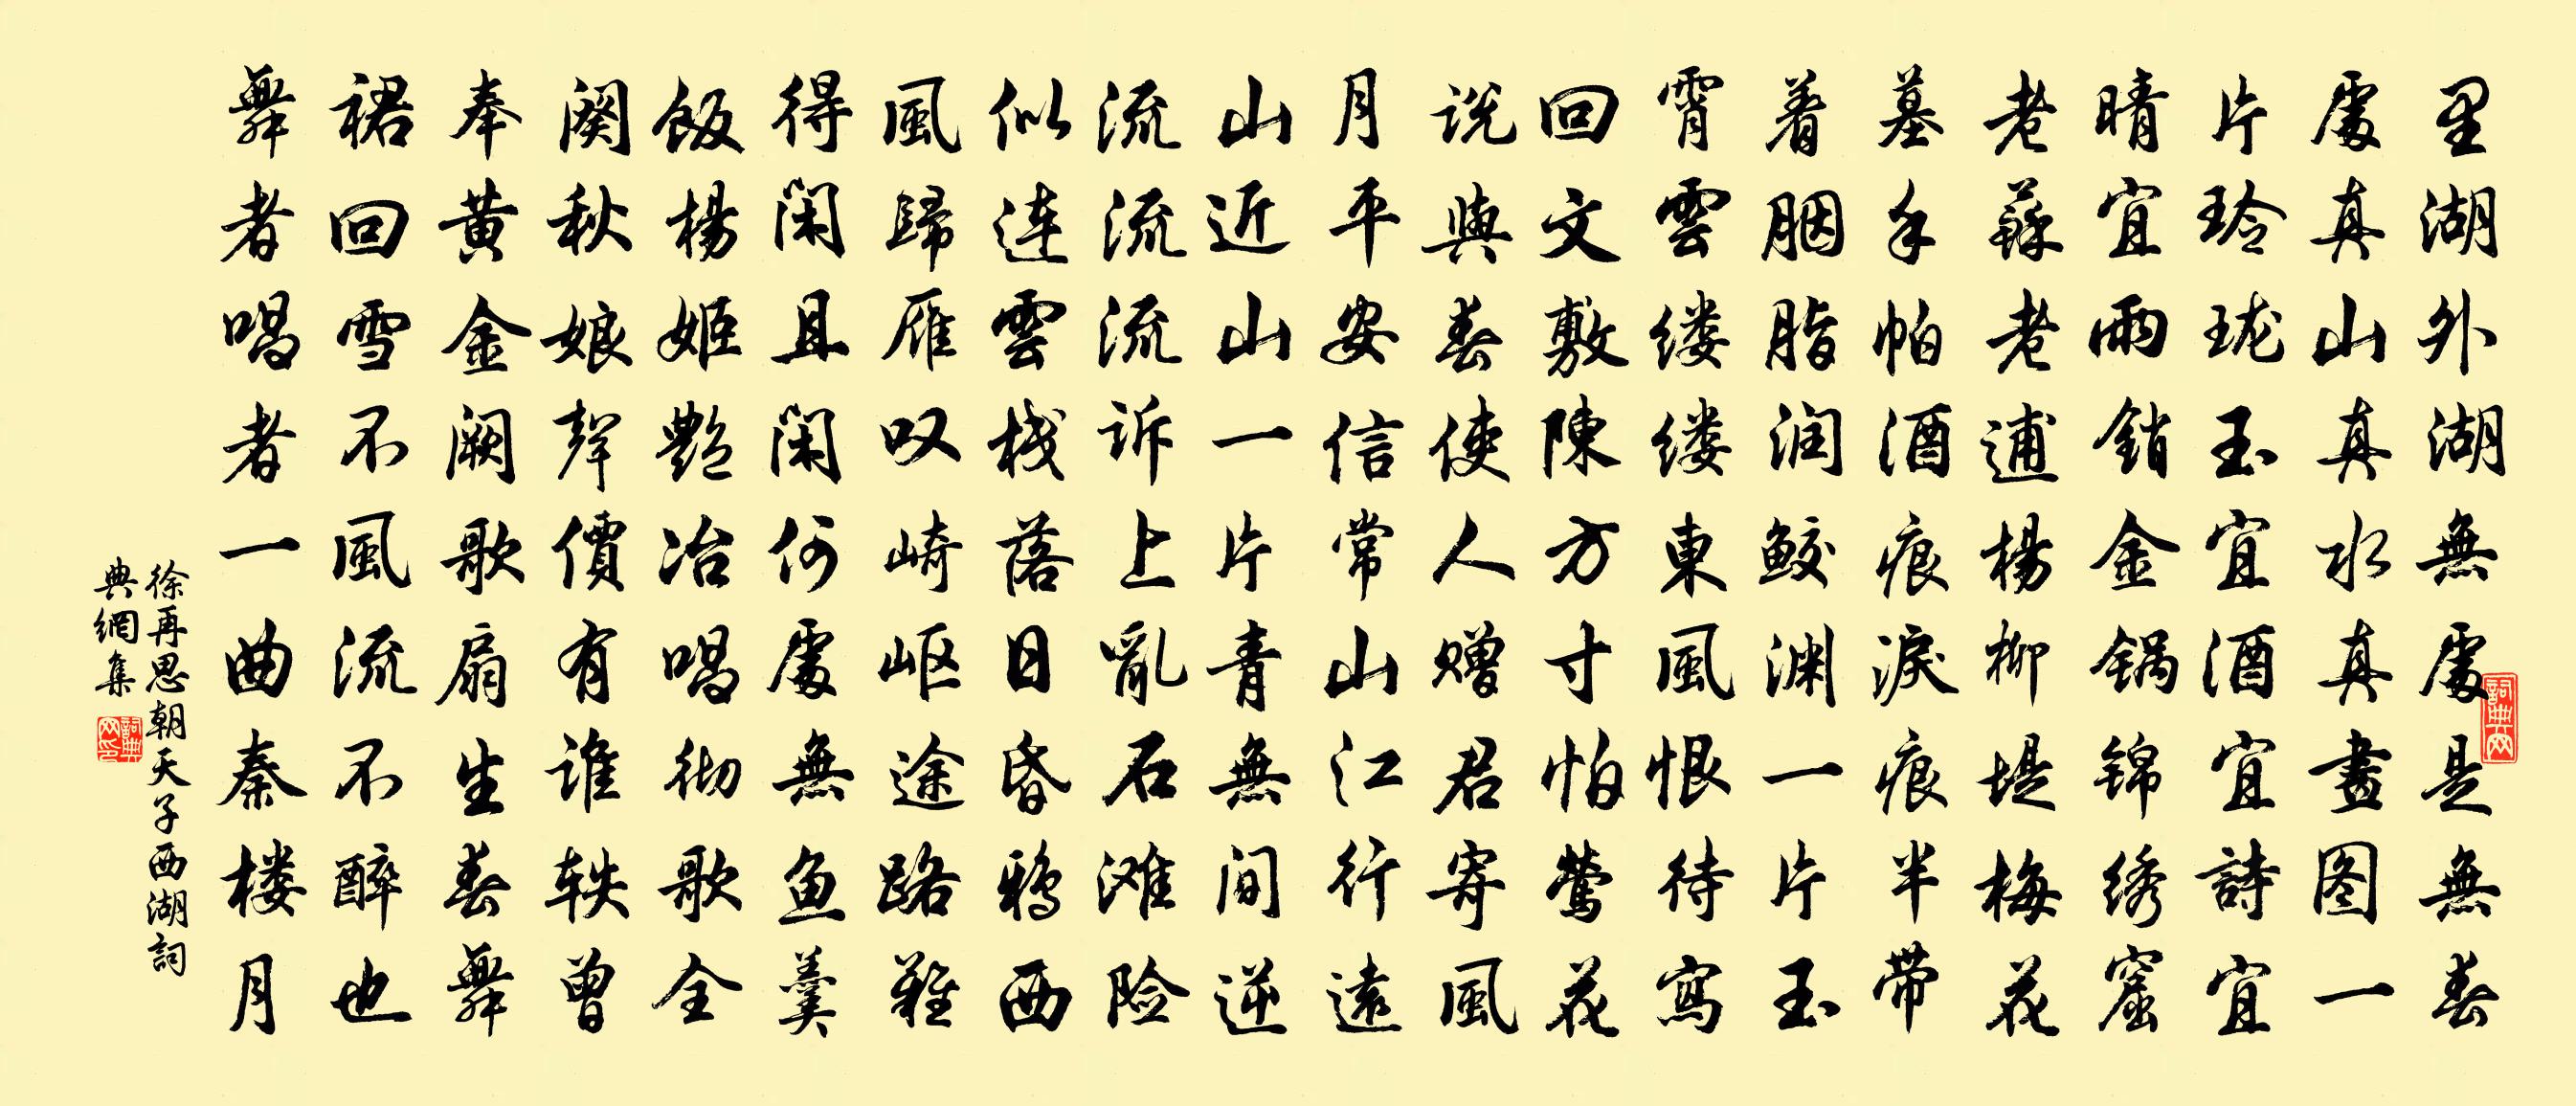 里湖外湖無處是無春
處真山真水真畫图一
片玲珑玉宜酒宜詩宜
晴宜雨銷金锅锦绣窟
老蘇老逋楊柳堤梅花
墓手帕酒痕淚痕半带
着胭脂润鲛渊一片玉
霄雲缕缕東風恨待寫
回文敷陳方寸怕莺花
说與春使人赠君寄風
月平安信常山江行遠
山近山一片青無间逆
流流流诉上亂石滩险
似連雲栈落日昏鸦西
風歸雁叹崎岖途路難
得闲且闲何處無鱼羹
饭楊姬艷冶唱彻歌全
阕秋娘聲價有谁轶曾
奉黄金阙歌扇生春舞
裙回雪不風流不醉也
舞者唱者一曲秦楼月
徐再思朝天子西湖詞
典網集
詞典网
詞典网印